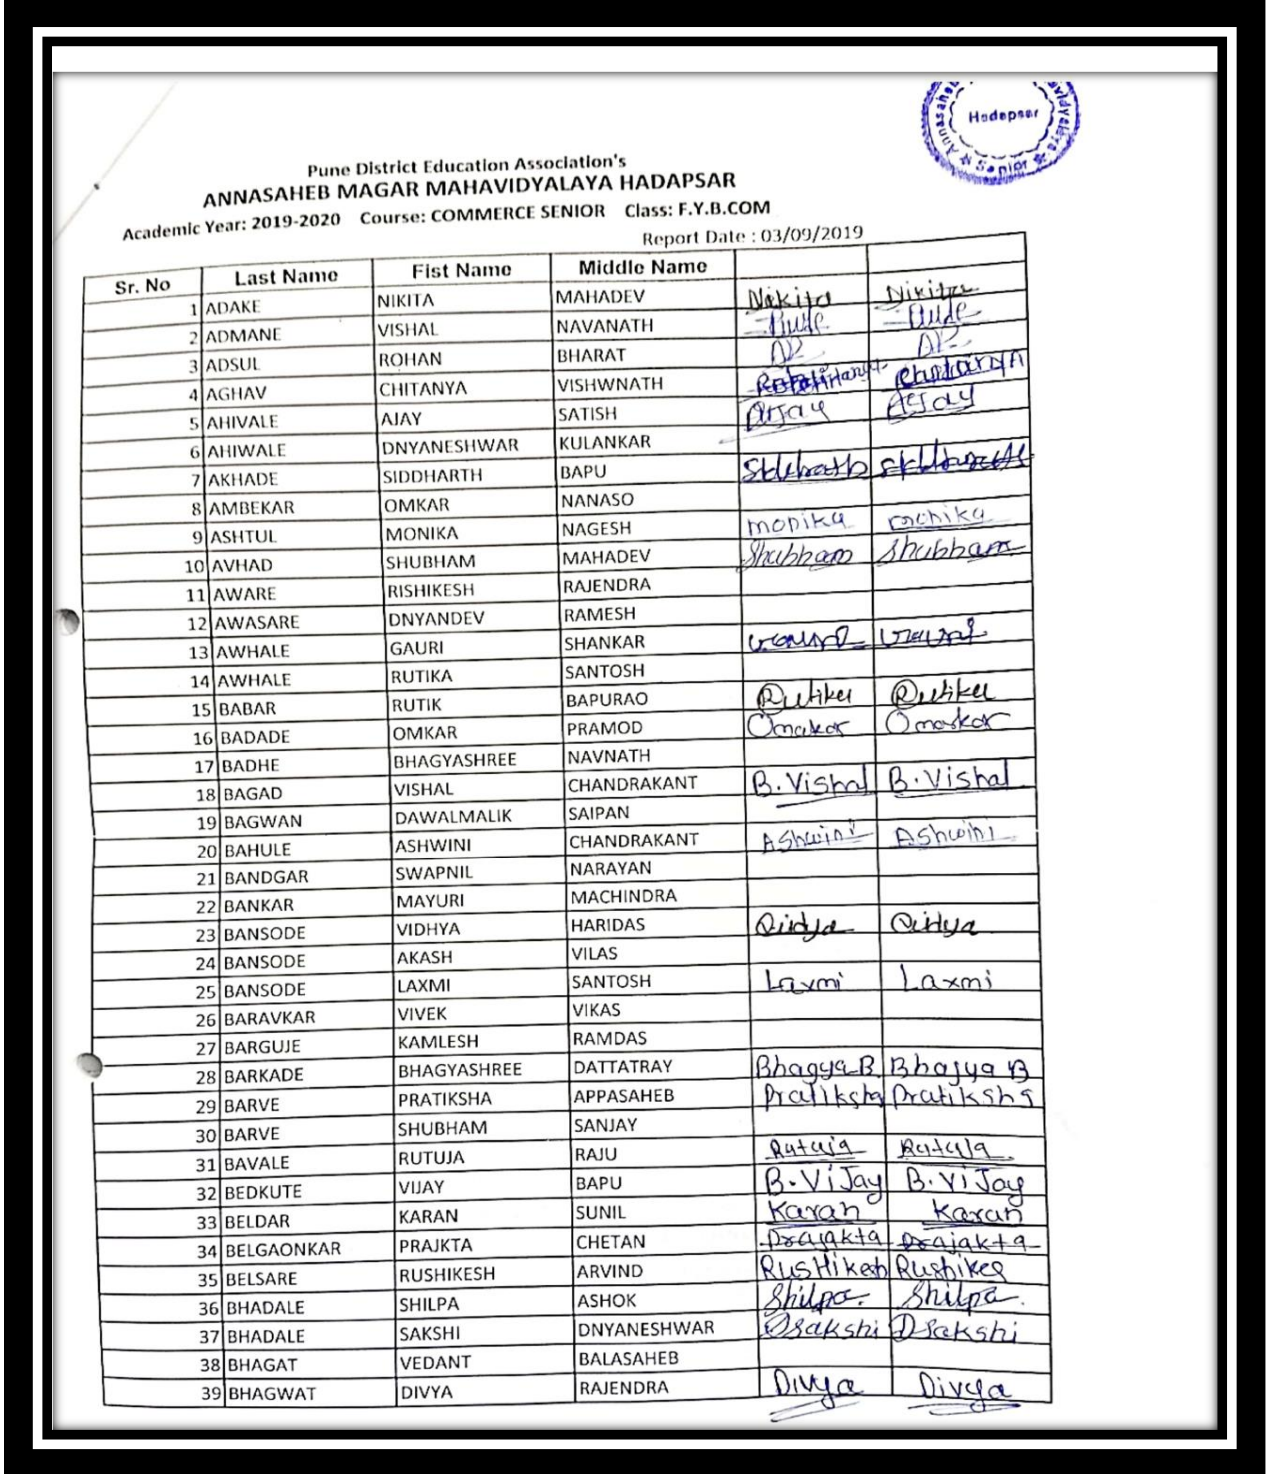 Annasaheb
vidyalaya
Hadapsar
★ Senior ★
Pune District Education Association's
ANNASAHEB MAGAR MAHAVIDYALAYA HADAPSAR
Academic Year: 2019-2020 Course: COMMERCE SENIOR Class: F.Y.B.COM
Report Date : 03/09/2019
Sr. No Last Name Fist Name Middle Name
1 ADAKE NIKITA MAHADEV Nikita Nikita
2 ADMANE VISHAL NAVANATH
3 ADSUL ROHAN BHARAT
4 AGHAV CHITANYA VISHWNATH
5 AHIVALE AJAY SATISH Ajay Ajay
6 AHIWALE DNYANESHWAR KULANKAR
7 AKHADE SIDDHARTH BAPU
8 AMBEKAR OMKAR NANASO
9 ASHTUL MONIKA NAGESH monika monika
10 AVHAD SHUBHAM MAHADEV Shubham Shubham
11 AWARE RISHIKESH RAJENDRA
12 AWASARE DNYANDEV RAMESH
13 AWHALE GAURI SHANKAR
14 AWHALE RUTIKA SANTOSH
15 BABAR RUTIK BAPURAO
16 BADADE OMKAR PRAMOD Omakar Omakar
17 BADHE BHAGYASHREE NAVNATH
18 BAGAD VISHAL CHANDRAKANT B.Vishal B.Vishal
19 BAGWAN DAWALMALIK SAIPAN
20 BAHULE ASHWINI CHANDRAKANT Ashwini Ashwini
21 BANDGAR SWAPNIL NARAYAN
22 BANKAR MAYURI MACHINDRA
23 BANSODE VIDHYA HARIDAS Vidya Vidya
24 BANSODE AKASH VILAS
25 BANSODE LAXMI SANTOSH Laxmi Laxmi
26 BARAVKAR VIVEK VIKAS
27 BARGUJE KAMLESH RAMDAS
28 BARKADE BHAGYASHREE DATTATRAY Bhagya B Bhagya B
29 BARVE PRATIKSHA APPASAHEB Pratiksha Pratiksha
30 BARVE SHUBHAM SANJAY
31 BAVALE RUTUJA RAJU Rutuja Rutuja
32 BEDKUTE VIJAY BAPU B.ViJay B.ViJay
33 BELDAR KARAN SUNIL Karan Karan
34 BELGAONKAR PRAJKTA CHETAN Prajakta Prajakta
35 BELSARE RUSHIKESH ARVIND RusHikesh Rushikes
36 BHADALE SHILPA ASHOK Shilpa. Shilpa.
37 BHADALE SAKSHI DNYANESHWAR Dsakshi Dsakshi
38 BHAGAT VEDANT BALASAHEB
39 BHAGWAT DIVYA RAJENDRA Divya Divya